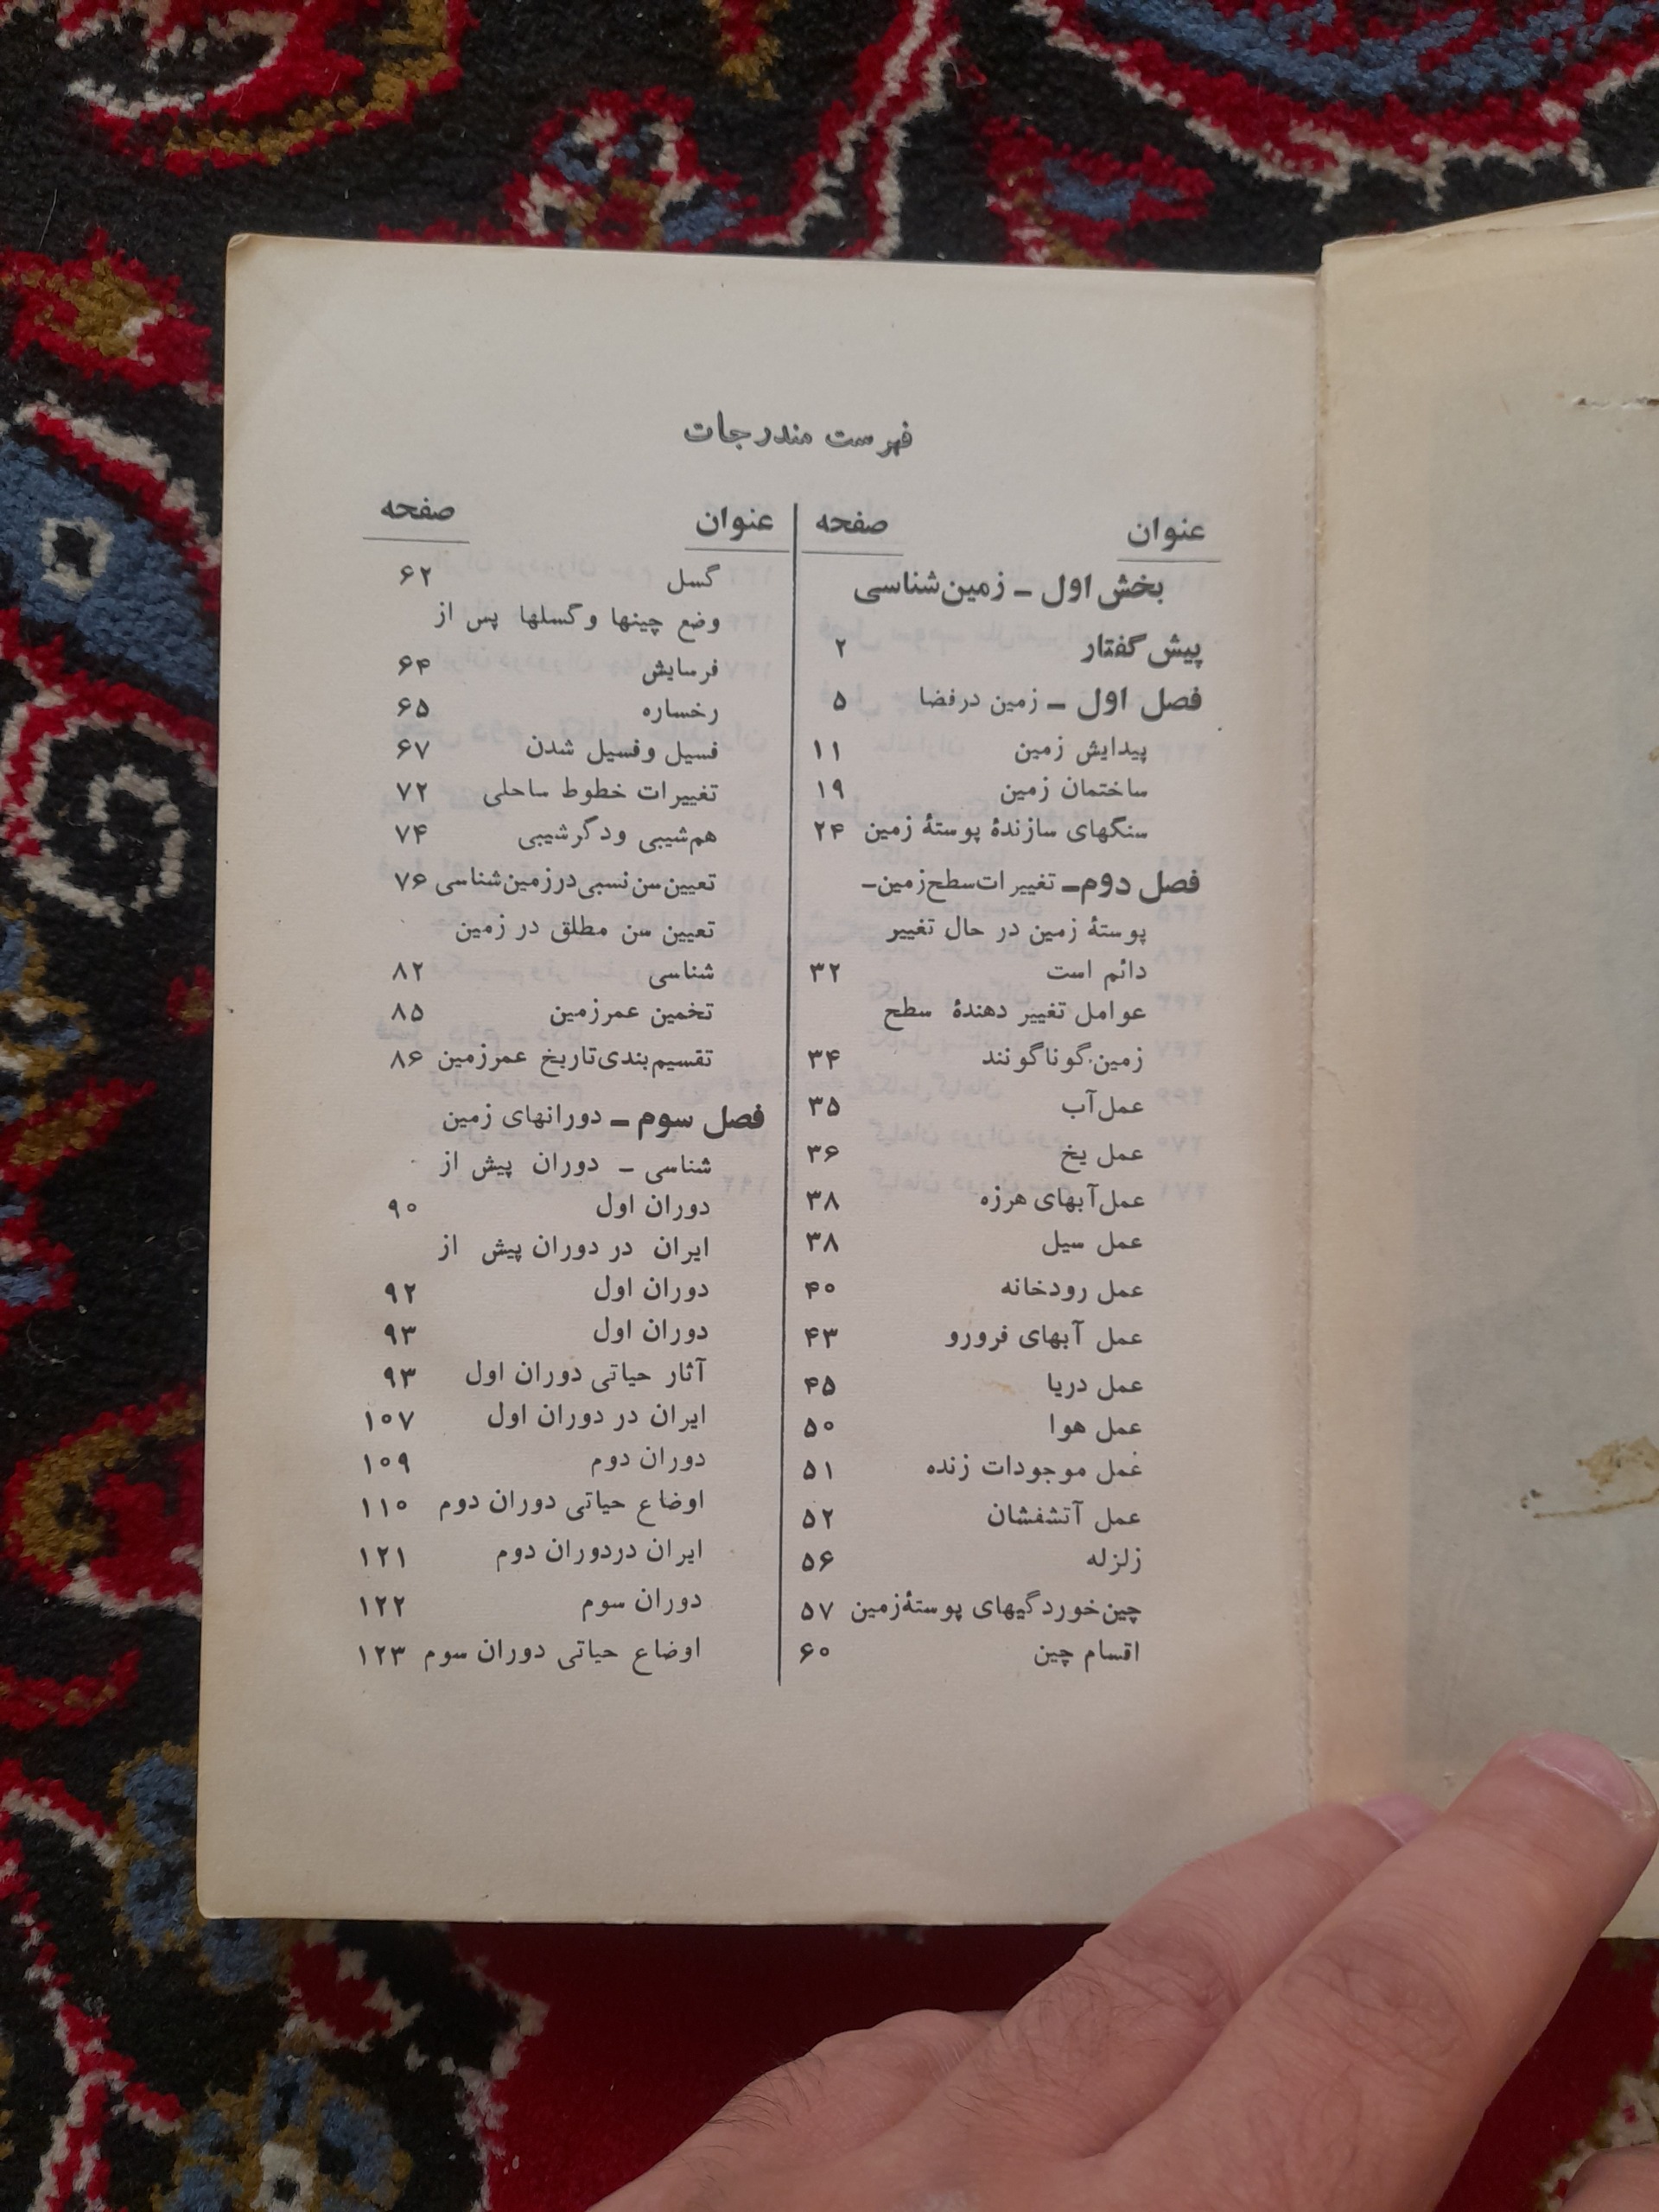 فهرست مندرجات
عنوان صفحه
بخش اول ـ زمین‌شناسی
پیش گفتار ۲
فصل اول ـ زمین در فضا ۵
پیدایش زمین ۱۱
ساختمان زمین ۱۹
سنگهای سازندهٔ پوستهٔ زمین ۲۴
فصل دوم ـ تغییرات سطح زمین ـ
پوستهٔ زمین در حال تغییر
دائم است ۳۲
عوامل تغییر دهندهٔ سطح
زمین گوناگونند ۳۴
عمل آب ۳۵
عمل یخ ۳۶
عمل آبهای هرزه ۳۸
عمل سیل ۳۸
عمل رودخانه ۴۰
عمل آبهای فرورو ۴۳
عمل دریا ۴۵
عمل هوا ۵۰
عمل موجودات زنده ۵۱
عمل آتشفشان ۵۲
زلزله ۵۶
چین‌خوردگیهای پوستهٔ زمین ۵۷
اقسام چین ۶۰
عنوان صفحه
گسل ۶۲
وضع چینها و گسلها پس از
فرسایش ۶۴
رخساره ۶۵
فسیل و فسیل شدن ۶۷
تغییرات خطوط ساحلی ۷۲
هم‌شیبی و دگرشیبی ۷۴
تعیین سن نسبی در زمین‌شناسی ۷۶
تعیین سن مطلق در زمین
شناسی ۸۲
تخمین عمر زمین ۸۵
تقسیم‌بندی تاریخ عمر زمین ۸۶
فصل سوم ـ دورانهای زمین
شناسی ـ دوران پیش از
دوران اول ۹۰
ایران در دوران پیش از
دوران اول ۹۲
دوران اول ۹۳
آثار حیاتی دوران اول ۹۳
ایران در دوران اول ۱۰۷
دوران دوم ۱۰۹
اوضاع حیاتی دوران دوم ۱۱۰
ایران در دوران دوم ۱۲۱
دوران سوم ۱۲۲
اوضاع حیاتی دوران سوم ۱۲۳